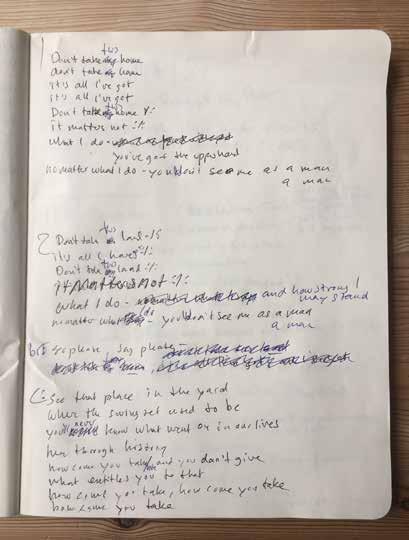 1
this
Don't take my home
this
don't take my home
it's all i've got
it's all i've got
this
Don't take my home
it matters not
What I do -
you've got the upperhand
no matter what I do - you don't see me as a man
a man
2
this
Don't take my land
it's all I have
this
Don't take my land
it matters not
What I do - and how strong I
may stand
no matter what I do - you don't see me as a man
a man
so please say
C: See that place in the yard
where the swing set used to be
you'll never know what went on in our lives
her through history
how come you take and you don't give
what entitles you to that
how come you take, how come you take
how come you take